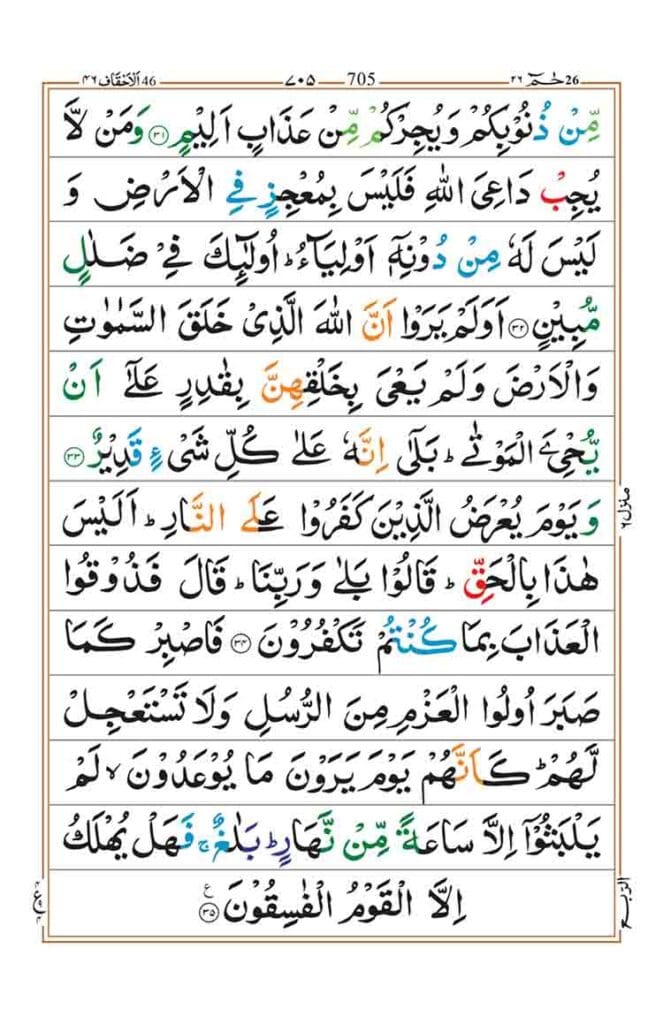 26 حٰمٓ ٢٦
705 ٧٠٥
46 اَلْاَحْقَاف ٤٦
مِّنْ ذُنُوْبِكُمْ وَيُجِرْكُمْ مِّنْ عَذَابٍ اَلِيْمٍ ﴿٣١﴾ وَمَنْ لَّا
يُجِبْ دَاعِىَ اللّٰهِ فَلَيْسَ بِمُعْجِزٍ فِى الْاَرْضِ وَ
لَيْسَ لَهٗ مِنْ دُوْنِهٖٓ اَوْلِيَآءُ ؕ اُولٰٓئِكَ فِىْ ضَلٰلٍ
مُّبِيْنٍ ﴿٣٢﴾ اَوَلَمْ يَرَوْا اَنَّ اللّٰهَ الَّذِىْ خَلَقَ السَّمٰوٰتِ
وَالْاَرْضَ وَلَمْ يَعْىَ بِخَلْقِهِنَّ بِقٰدِرٍ عَلٰٓى اَنْ
يُّحْیِۦَ الْمَوْتٰى ؕ بَلٰٓى اِنَّهٗ عَلٰى كُلِّ شَىْءٍ قَدِيْرٌ ﴿٣٣﴾
وَيَوْمَ يُعْرَضُ الَّذِيْنَ كَفَرُوْا عَلَى النَّارِ ؕ اَلَيْسَ
هٰذَا بِالْحَقِّ ؕ قَالُوْا بَلٰى وَرَبِّنَا ؕ قَالَ فَذُوْقُوا
الْعَذَابَ بِمَا كُنْتُمْ تَكْفُرُوْنَ ﴿٣٤﴾ فَاصْبِرْ كَمَا
صَبَرَ اُولُوا الْعَزْمِ مِنَ الرُّسُلِ وَلَا تَسْتَعْجِلْ
لَّهُمْ ؕ كَاَنَّهُمْ يَوْمَ يَرَوْنَ مَا يُوْعَدُوْنَ ۙ لَمْ
يَلْبَثُوْٓا اِلَّا سَاعَةً مِّنْ نَّهَارٍ ؕ بَلٰغٌ ۚ فَهَلْ يُهْلَكُ
اِلَّا الْقَوْمُ الْفٰسِقُوْنَ ﴿٣٥﴾ ع
منزل ٦
الربع